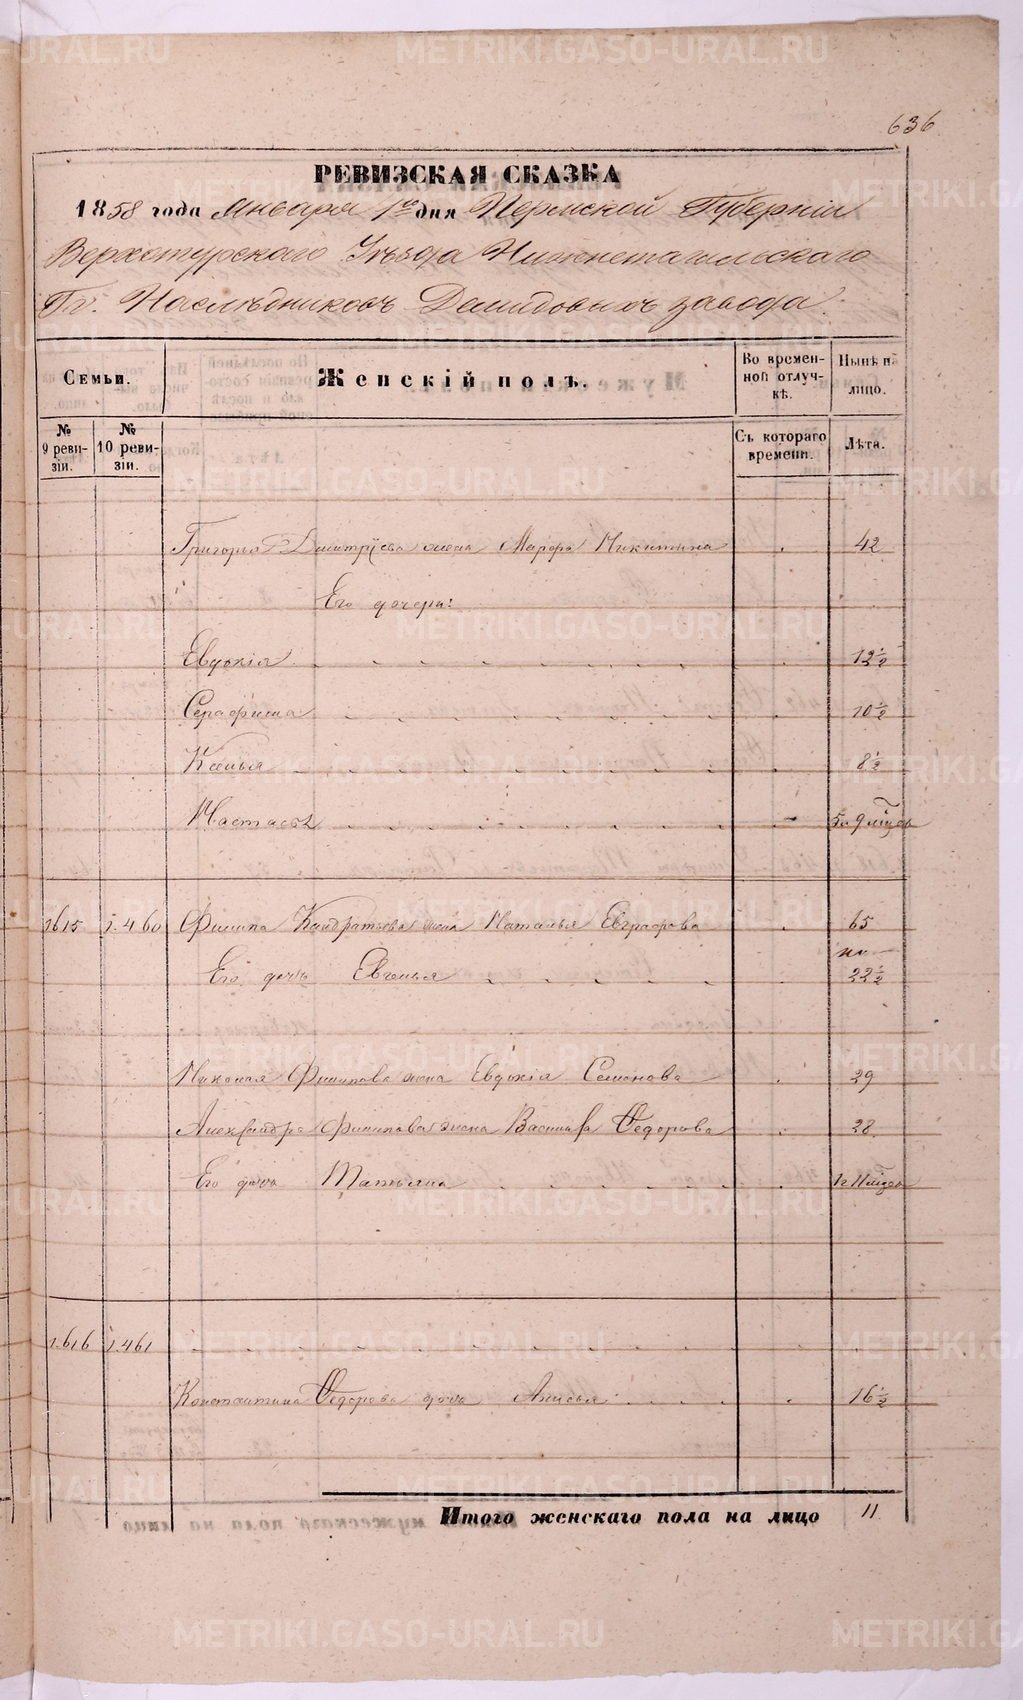 636
РЕВИЗСКАЯ СКАЗКА
1858 года Января 1го дня Пермской Губерніи
Верхотурскаго Уѣзда Нижнетагильскаго
Гг. Наслѣдниковъ Демидовыхъ завода.
Семьи. Женскій полъ. Во времен-ной отлуч-кѣ. Нынѣ на лицо.
№ 9 реви-зіи. № 10 реви-зіи. Съ котораго времени. Лѣта.
Григорья Дмитріева жена Марфа Никитина 42
Его дочери:
Евдокія 12½
Серафима 10½
Ксенья 8½
Настасья 5 г. 9 мцсв
1615 1.460 Филипа Кондратьева жена Наталья Евграфова 65
Его дочь Евгенья 22½
Николая Филипова жена Евдокія Семенова 29
Александра Филипова жена Васильева Ѳедорова 28
Его дочь Татьяна 1 г 11 мцсв
1.616 1.461
Константина Ѳедорова дочь Анисья 16½
Итого женскаго пола на лицо 11
METRIKI.GASO-URAL.RU